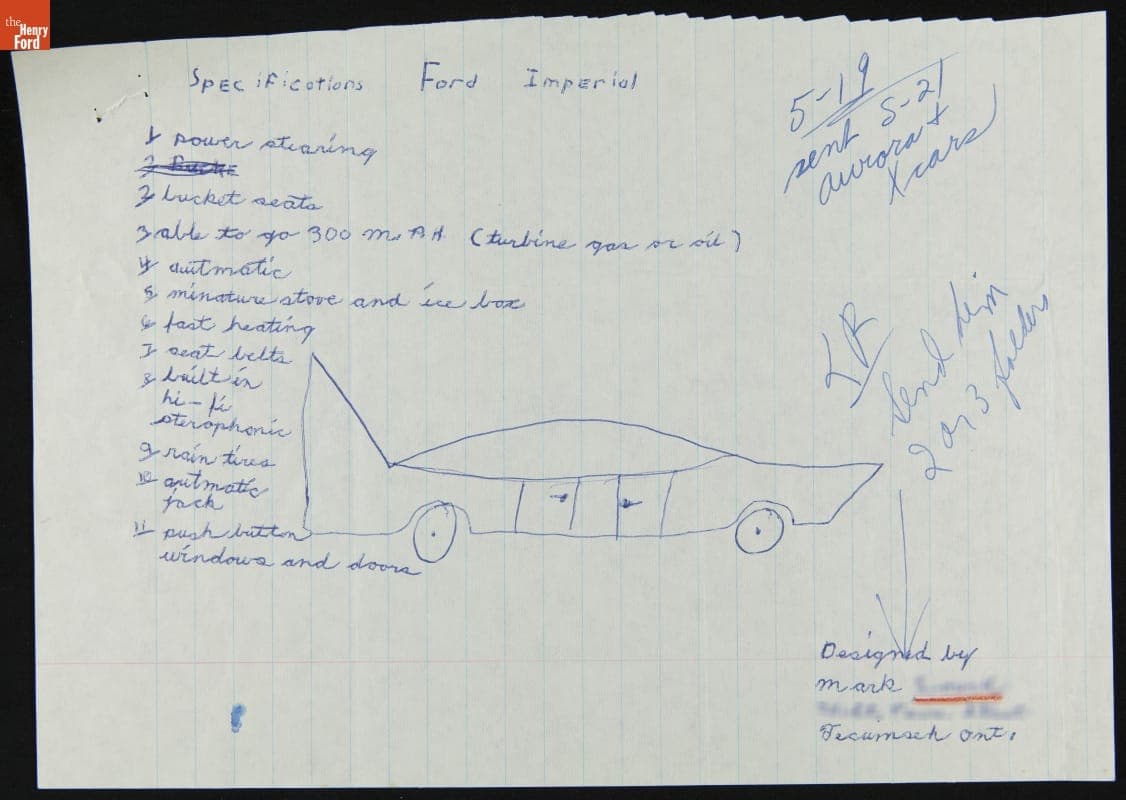 the Henry Ford
Specifications Ford Imperial
1 power stearing
2 bucket seats
3 able to go 300 m.P.H. (turbine gas or oil)
4 autmatic
5 minature stove and ice box
6 fast heating
7 seat belts
8 built in
hi-fi
sterophonic
9 rain tires
10 autmatic
jack
11 push button
windows and doors
5-19
sent 5-21
aurora +
X cars
Send him
2 or 3 folders
Designed by
mark
Tecumseh ont.